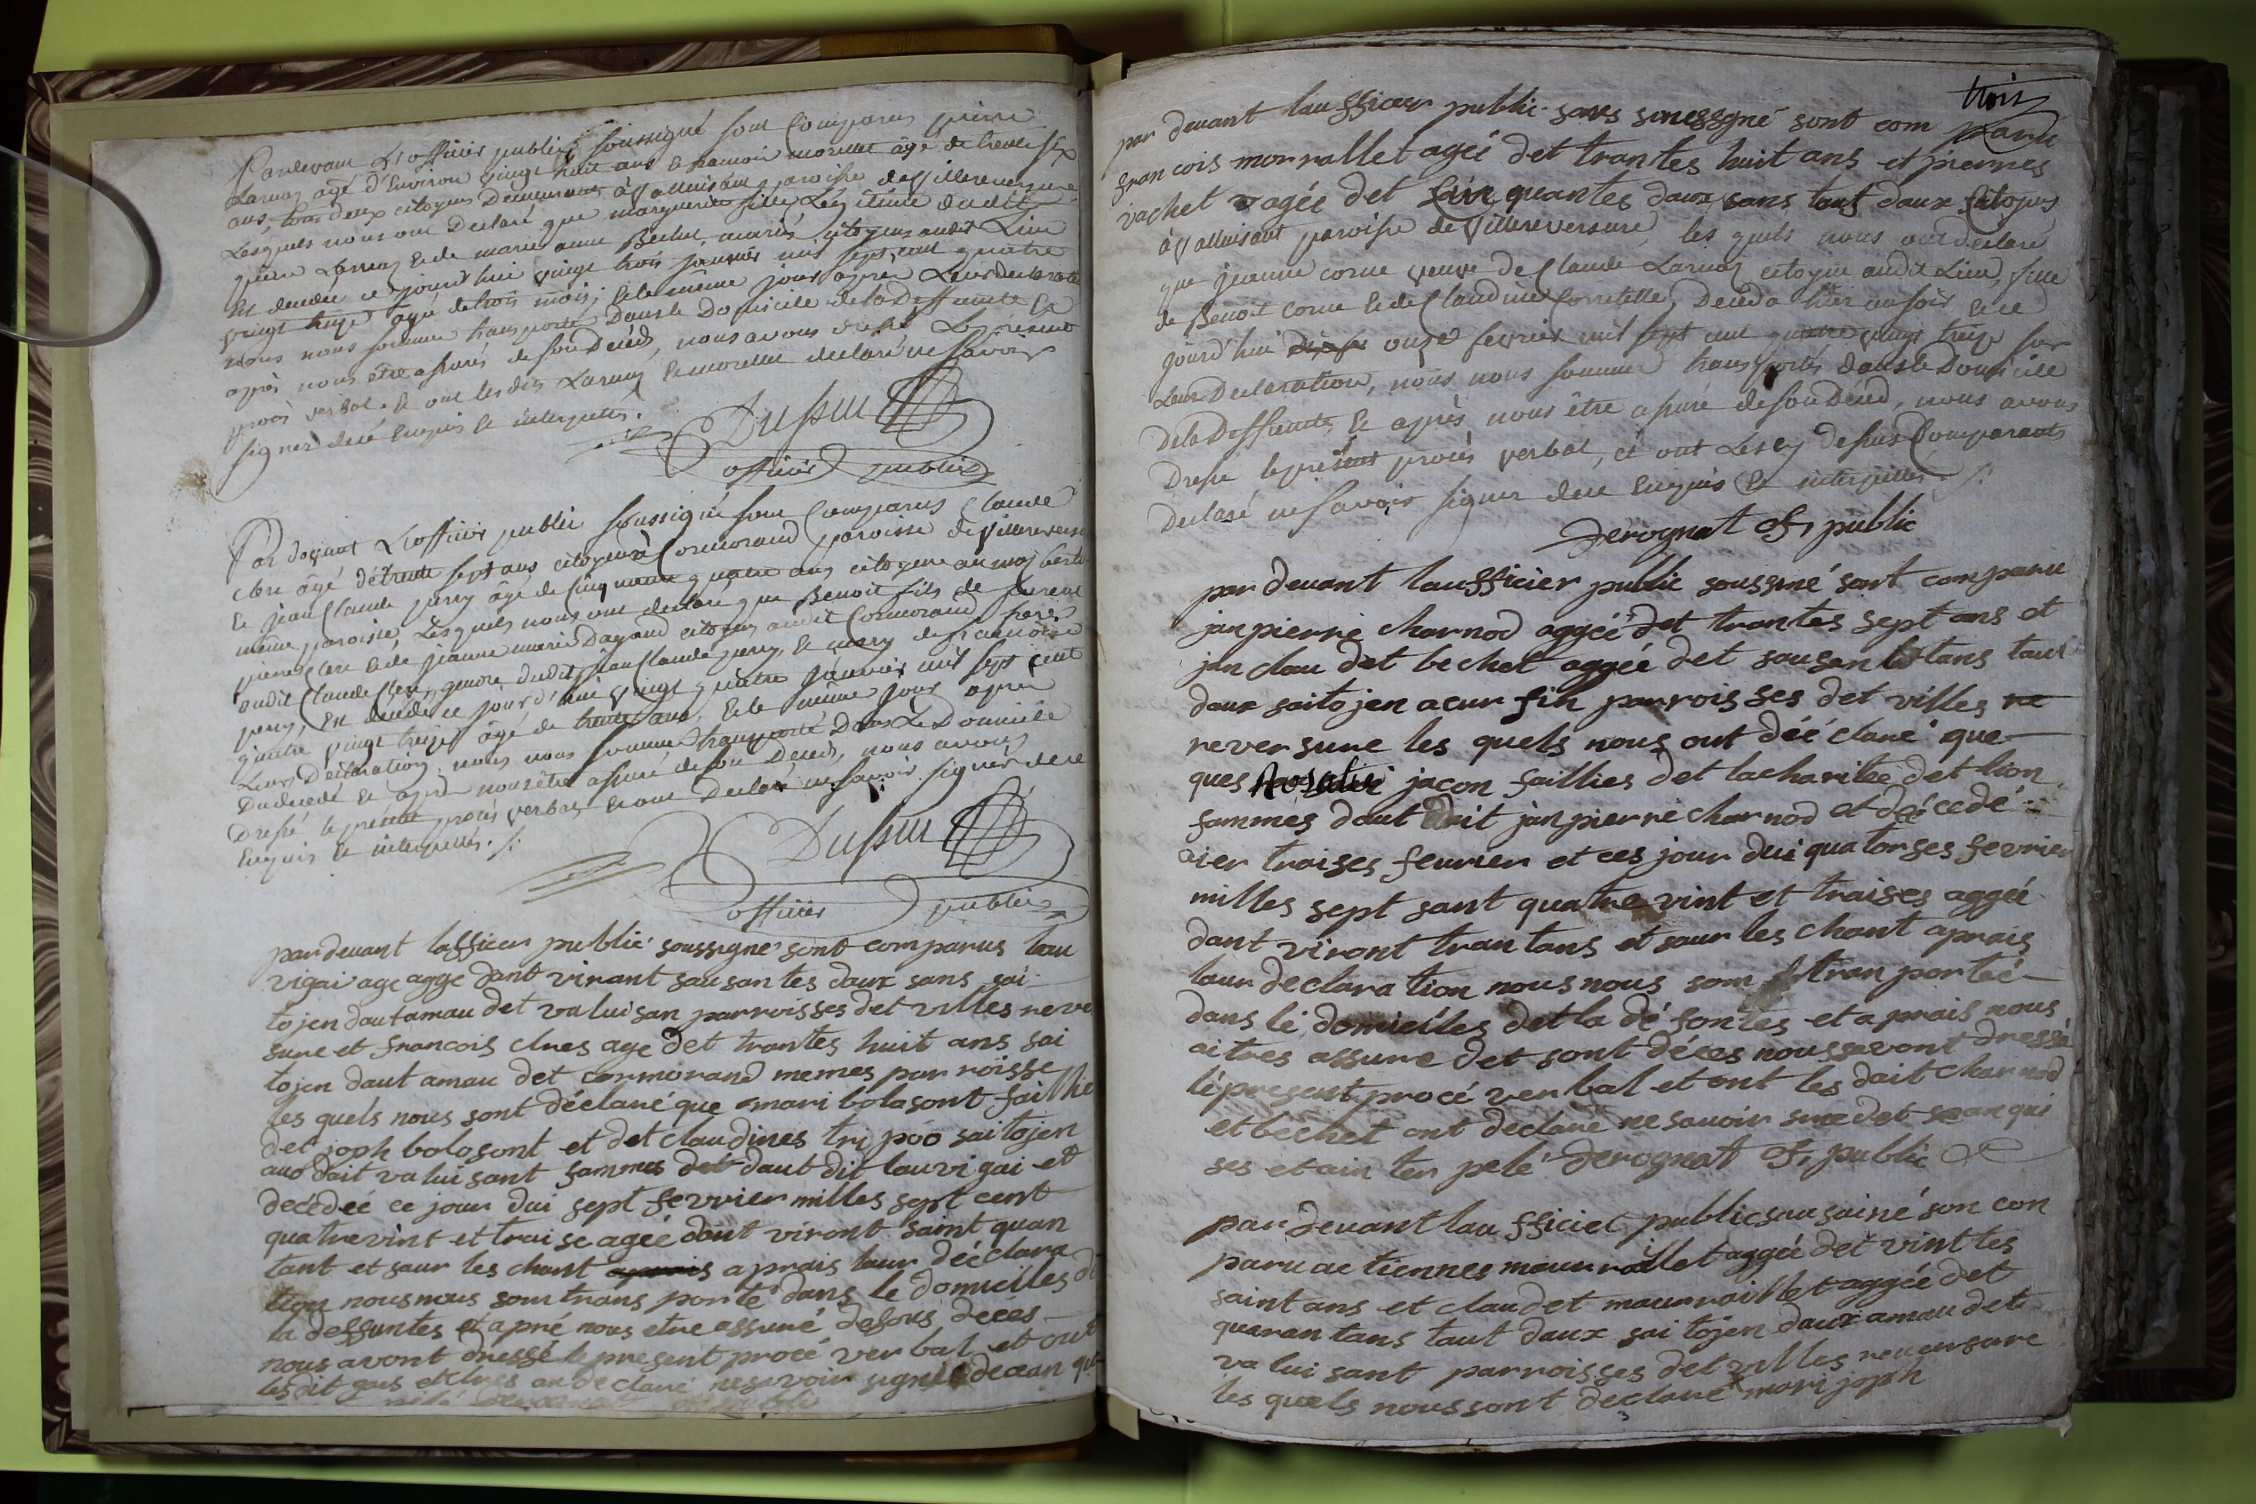 Pardevant L'officier public soussigné sont Comparus pierre
Larnay agé d'Environ vingt huit ans & pramoir morellet âgé de trente six
ans, tous deux citoyens Demeurants à Valluisant paroisse de Villereversure
Lesquels nous ont Declaré que marguerite fille Légitime dudit
pierre Larnay & de marie anne Bechet, mariés citoyens audit Lieu
Est decedée ce jourd'hui vingt trois janvier mil sept cent quatre
vingt treize agé de trois mois, & le même jour apres Leur declaration
nous nous sommes transporté Dans le Domicile de la Deffunte &
après nous être assurés de son Décès, nous avons dressé Le present
procès verbal. & ont les dits Larnay & morellet declaré ne savoir
signer de ce Enquis & interpellés.
Dufour
officier public
Par devant L'officier public soussigné sont Comparus Claude
Clerc âgé de trente sept ans citoyen à Cormorand paroisse de Villereversure
& jean Claude perry âgé de Cinquante quatre ans citoyen au may
même paroisse, Lesquels nous ont declaré que Benoit fils de
pierre Clerc & de jeanne marie Dagand citoyens audit Cormorand frere
audit Claude Clerc, gendre dudit jean Claude perry, & mary de francoise
perry, Est decedé ce jourd'hui vingt quatre janvier mil sept cent
quatre vingt treize âgé de trente ans, & le même jour après
Leur Declaration, nous nous sommes transporté Dans Le Domicile
Du decedé & après nous être assuré de son Décès, nous avons
Dressé le present procès verbal & ont Declaré ne savoir signer de ce
Enquis & interpellés. /.
Dufour
officier public
par devant lofficier public soussigné sont comparus lau
vigai age agge dant viront sausantes daux sans sai
tojen dautamau det valuisan parroisses det villes reve
sure et francois clres age det trantes huit ans sai
tojen daut amau det cormorand memes par roisse
les quels nous sont déclaré que mari bolasont faithe
det joph bolosont et det claudines tripóo saitojen
auo dait valuisant fammes det daut dit lauvigai et
decédeé ce jour dui sept fevvrier milles sept cent
quatrevint et traise agée dant viront saint quan
tant et saur les chant aprais laur déclara
tion nousnous som trans porte dans le domicilles de
la deffuntes et apré nous etre assuré desous deces
nous avont dressé le present procé verbal et ont
les dit gais et clres on declaré nesavoir signé decean qui

trois
par devant laufficier public sous sousssgné sont com parus
francois morrallet agéé det trantes huit ans et pierres
vachet agée det sinquantes daux sans tous daux sitojens
à Valluisant paroisse de Villereversure, les quels nous ont declaré
que jeanne corne veuve de Claude Larnay citoyen audit Lieu, fille
de Benoit corne & de Claudine Corretelle, Deceda hier au soir & ce
jourd'hui onze fevrier mil sept cent quatre vingt treize sur
Leur Declaration, nous nous sommes transportés dans le Domicile
de la Deffunte, & après nous être assuré de son Décès, nous avons
Dressé le présent procès verbal, et ont Les cy dessus Comparants
declaré ne savoir signer de ce Enquis & interpellés. /.
Derognat of, public
par devant laufficier public soussiné sont comparu
janpierre charnod aggéé det trantes sept ans et
jan clau det bechet aggée det sousan tans taus
daux saitojen acurfin parroisses det villes re
reversure les quels nous ont déé claré que
ques jacon faillies det lacharitée det lion
fammes daut dait janpierre charnod et décedé
aier traises feurier et ces jour dui quatorses fevrier
milles sept sant quatre vint et traises aggéé
dant viront tran tans et saur les chant aprais
laur declara tion nousnous som tran portéé
dans lé domicilles det la dé fontes et aprais nous
aitres assure det sont déces nousavont dressé
lépresent procé verbal et ont les dait charnod
et bechet ont declaré ne sauoir sine det sean qui
ses et ain ter pelé Derognat of, public
par devant laufficiec public sausainé son con
paru ac tiennes maurraillet aggéé det vinttes
saint ans et claudet maurraillet aggéé det
quaran tans taut daux saitojen daux amau det
va lui sant parroisses det villes reversure
les quels noussont declaré mari joph